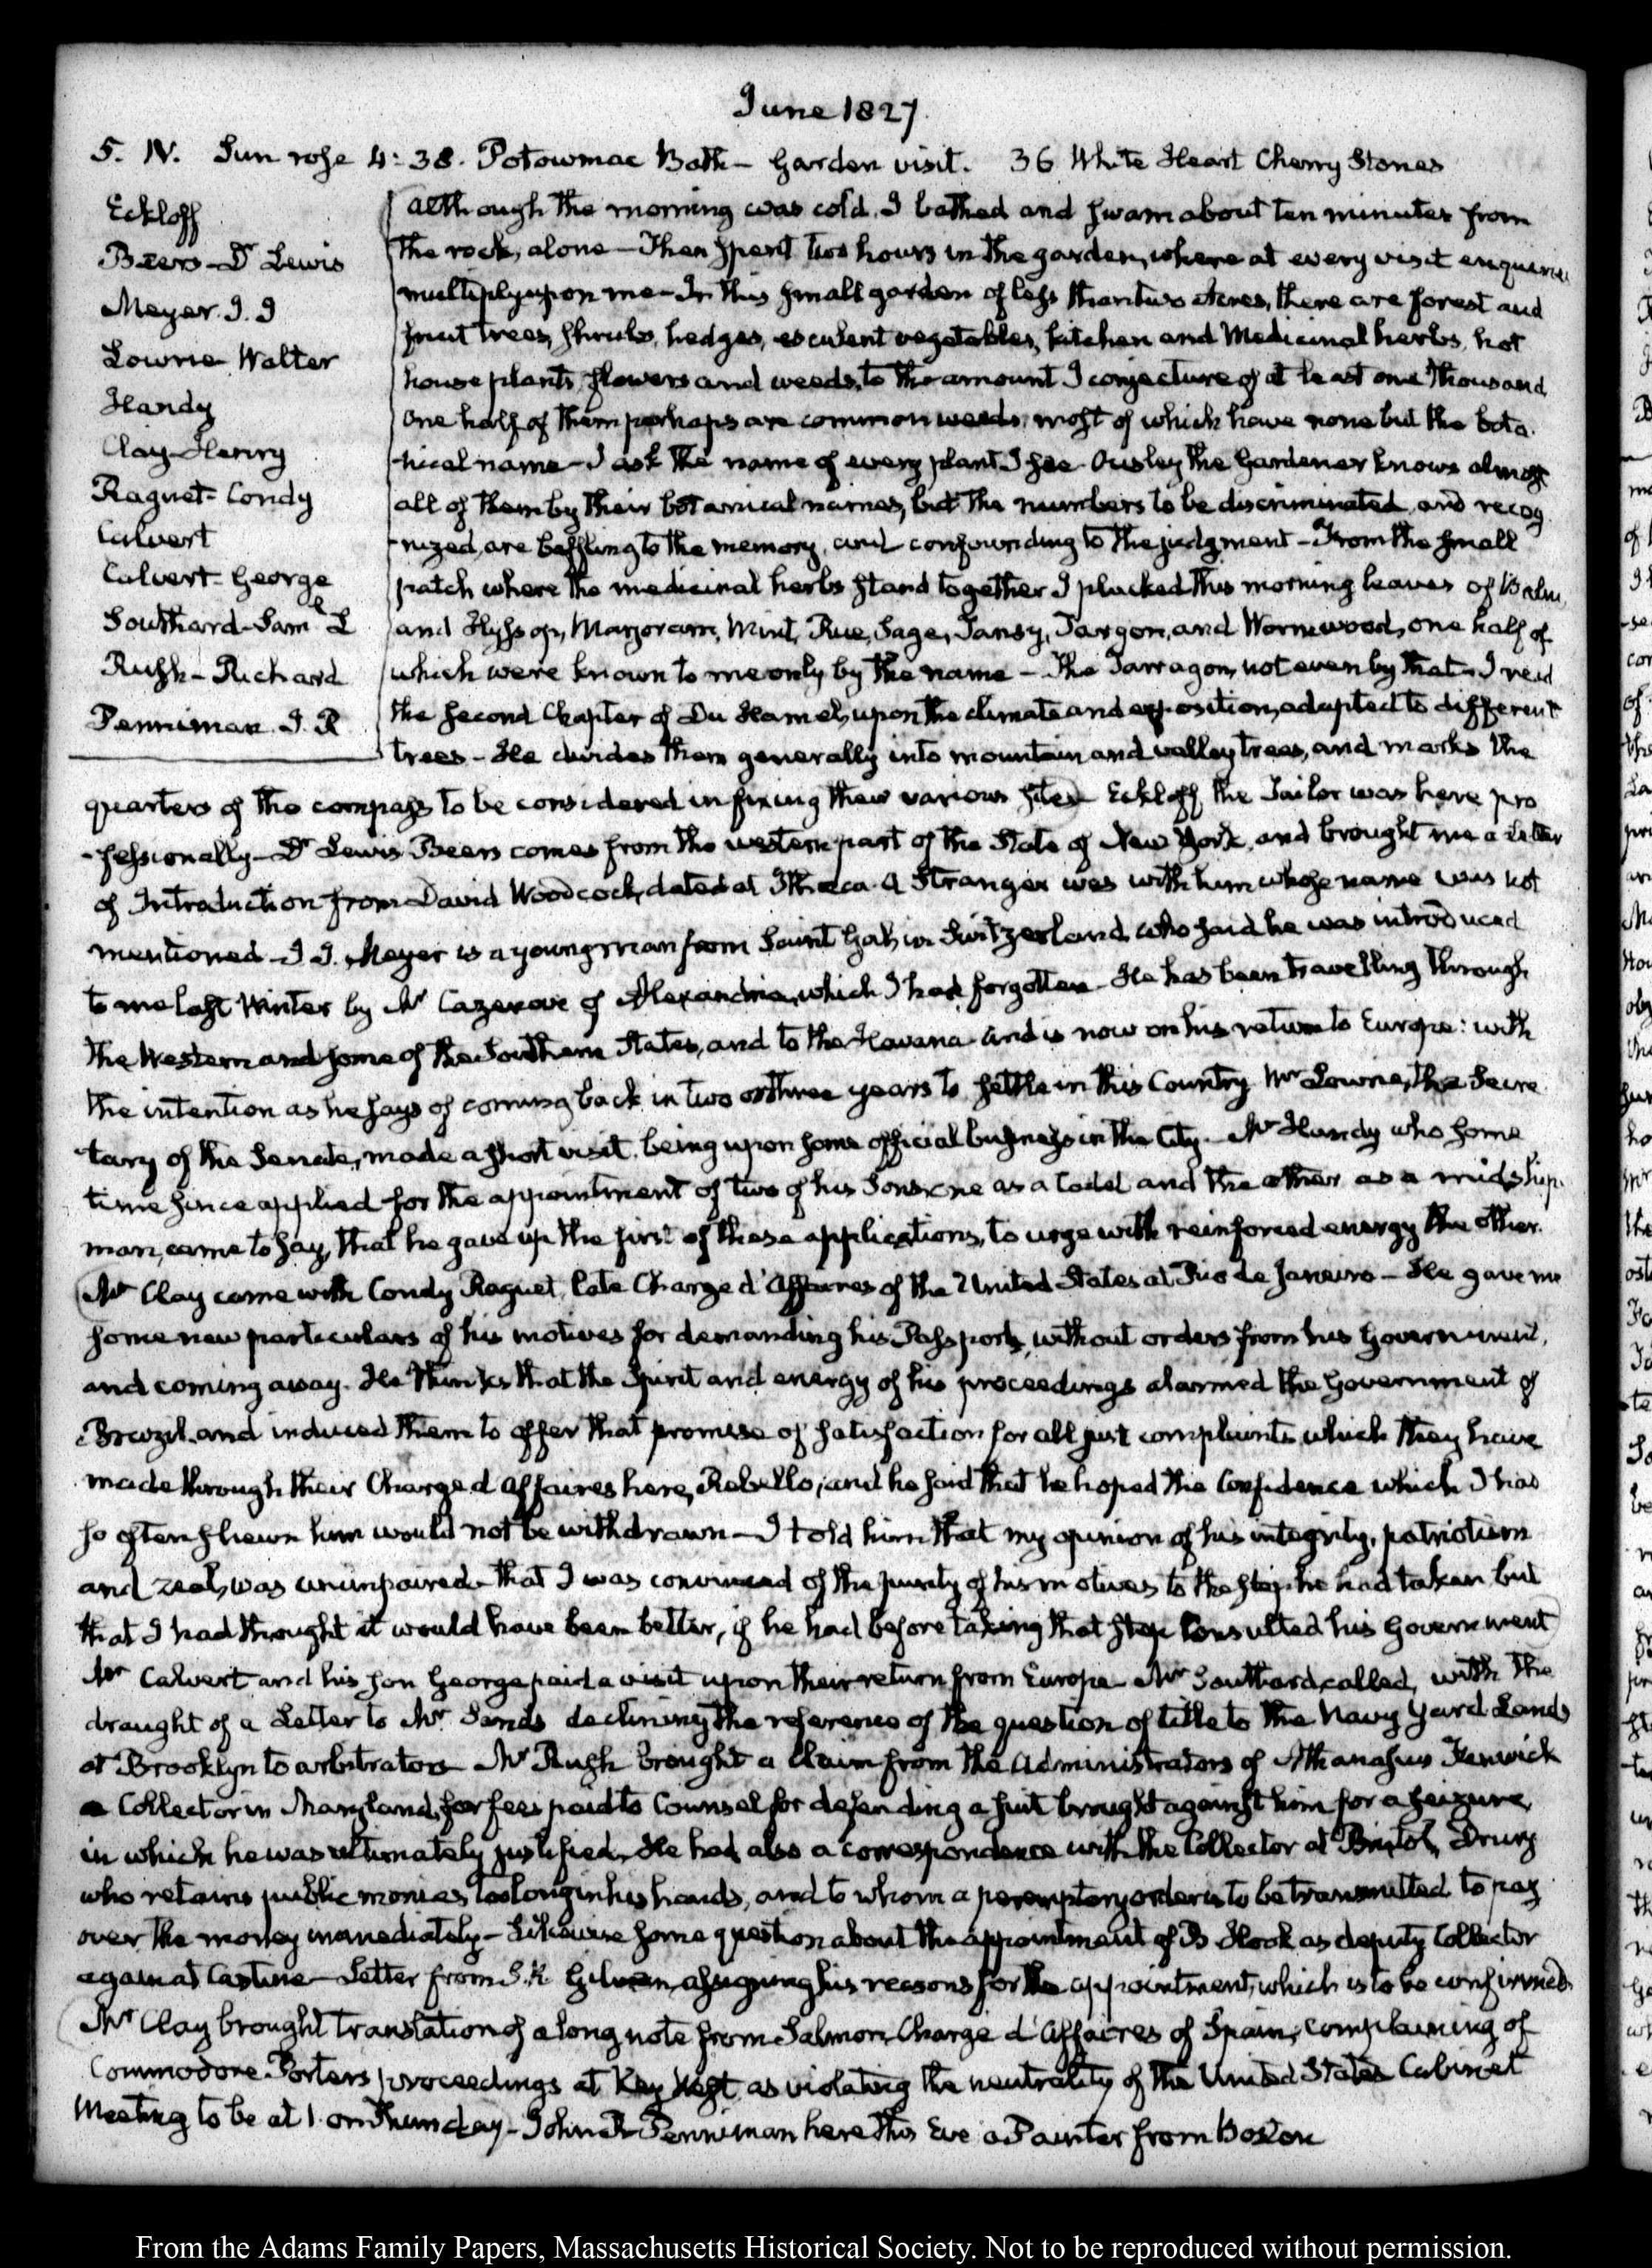 June 1827.
5. IV. Sun rose 4:38. Potowmac Bath — Garden visit. 36 White Heart Cherry Stones
Eckloff
Beers — Dr Lewis
Meyer. J. J
Lowrie Walter
Handy
Clay — Henry
Raguet — Condy
Calvert
Calvert — George
Southard — Saml L
Rush — Richard
Penniman. J. R
Although the morning was cold, I bathed and swam about ten minutes from
the rock, alone — Then spent two hours in the garden, where at every visit enquiries
multiply upon me — In this small garden of less than two Acres, there are forest and
fruit trees, shrubs, hedges, esculent vegetables, kitchen and Medicinal herbs, hot
house plants, flowers and weeds, to the amount I conjecture of at least one thousand
one half of them perhaps are common weeds, most of which have none but the bota-
-nical name — I ask the name of every plant I see. Ousley the Gardener knows almost
all of them by their botanical names, but the numbers to be discriminated, and recog
-nized, are baffling to the memory, and confounding to the judgment — From the small
patch where the medicinal herbs stand together I plucked this morning leaves of Balm
and Hyssop, Marjoram, Mint, Rue, Sage, Tansy, Targon, and Wormwood, one half of
which were known to me only by the name — The Tarragon, not even by that — I read
the second Chapter of Du Hamel, upon the climate and exposition, adapted to different
trees — He divides them generally into mountain and valley trees, and marks the
quarters of the compass to be considered in fixing their various sites — Eckloff the Tailor was here pro
-fessionally — Dr Lewis Beers comes from the western part of the State of New York, and brought me a Letter
of Introduction from David Woodcock, dated at Ithaca. A Stranger was with him whose name was not
mentioned — J. J. Meyer is a young man from Saint Gall, in Switzerland, who said he was introduced
to me last Winter by Mr Cazenove of Alexandria, which I had forgotten. He has been travelling through
the Western and some of the Southern States, and to the Havana and is now on his return to Europe: with
the intention as he says of coming back in two or three years to settle in this Country. Mr Lowrie, the Secre
tary of the Senate, made a short visit, being upon some official business in the City. Mr Handy who some
time since applied for the appointment of two of his Sons, one as a Cadet and the other as a midship-
man, came to say, that he gave up the first of these applications, to urge with reinforced energy the other.
Mr Clay came with Condy Raguet, late Charge d'Affaires of the United States at Rio de Janeiro — He gave me
some new particulars of his motives for demanding his Passports, without orders from his Government,
and coming away. He thinks that the Spirit and energy of his proceedings alarmed the Government of
Brazil, and induced them to offer that promise of satisfaction for all just complaints, which they have
made through their Charge d'Affaires here, Rebello; and he said that he hoped the Confidence which I had
so often shewn him would not be withdrawn — I told him that my opinion of his integrity, patriotism
and zeal, was unimpaired — that I was convinced of the purity of his motives to the step he had taken but
that I had thought it would have been better, if he had before taking that step Consulted his Government
Mr Calvert and his son George paid a visit upon their return from Europe. Mr Southard called, with the
draught of a Letter to Mr Sands declining the reference of the question of title to the Navy Yard Lands
at Brooklyn to arbitrators — Mr Rush brought a claim from the Administrators of Athanasius Fenwick
a Collector in Maryland, for fees paid to Counsel for defending a suit brought against him for a seizure,
in which he was ultimately justified. He had also a correspondence with the Collector at Bristol, Drury
who retains public monies too long in his hands, and to whom a peremptory order is to be transmitted to pay
over the money immediately — Likewise some question about the appointment of B Hook as deputy Collector
again at Castine — Letter from S. K. Gilman, assigning his reasons for the appointment, which is to be confirmed.
Mr Clay brought translation of a long note from Salmon, Charge d'Affaires of Spain, complaining of
Commodore Porters proceedings at Key West, as violating the neutrality of the United States Cabinet
Meeting to be at 1. on Thursday — John R Penniman here this Eve a Painter from Boston
From the Adams Family Papers, Massachusetts Historical Society. Not to be reproduced without permission.